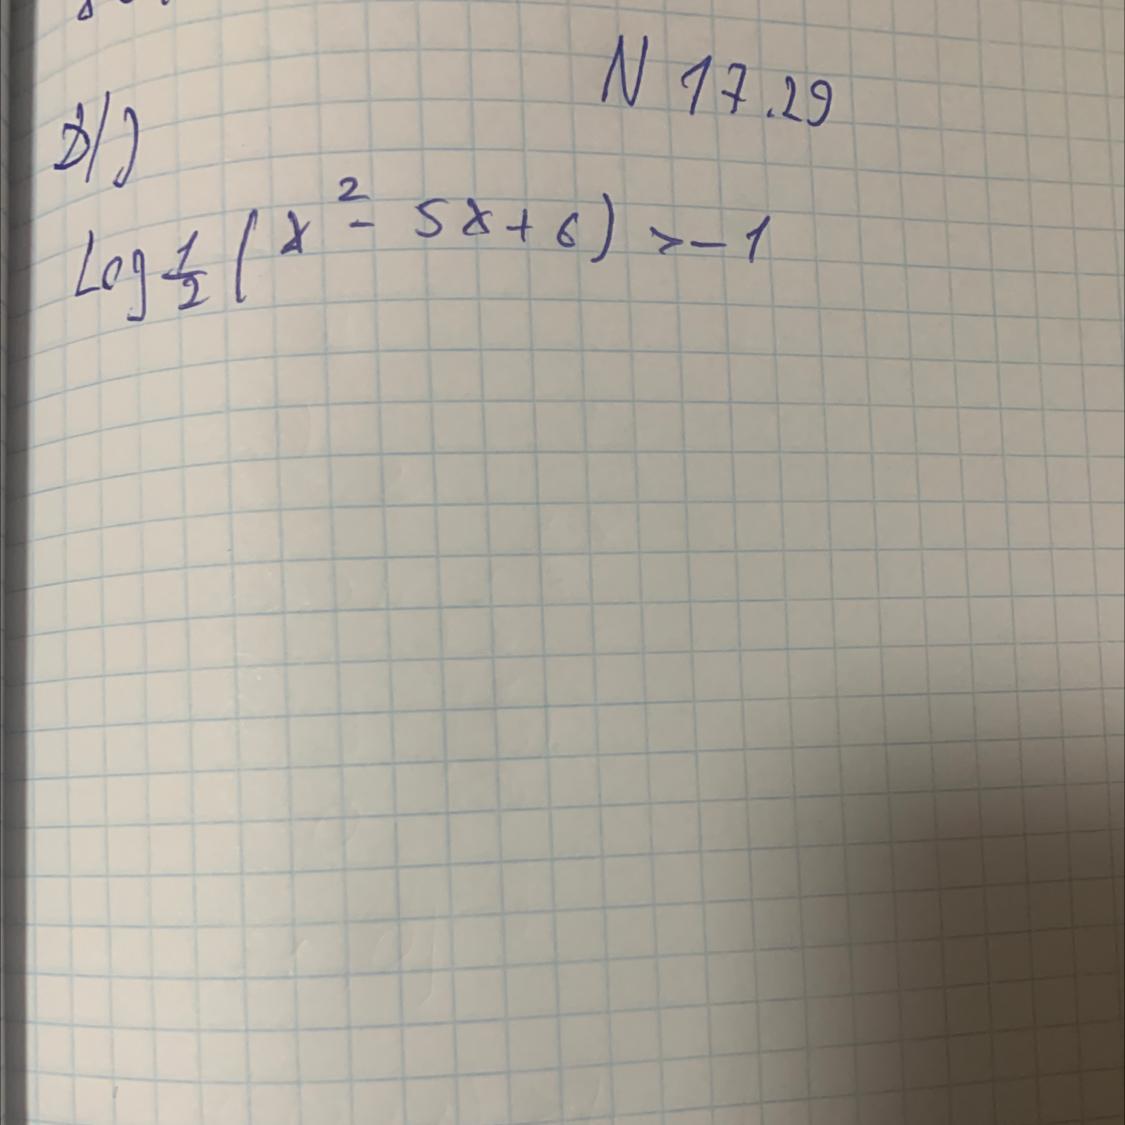 N 17.29
Log 1/2 (x² - 5x + 6) > -1